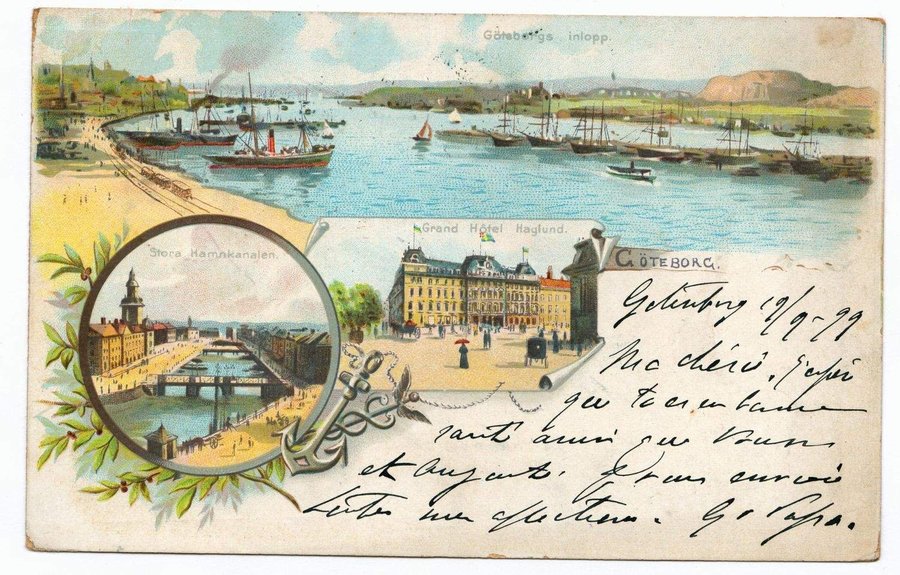 Göteborgs inlopp.
Stora Hamnkanalen.
Grand Hôtel Haglund.
GÖTEBORG.
Gotenborg 19/9-99
Ma chérie, J'espère
que tu es en bonne
santé ainsi que
et August. Je vous envoie
toutes mes affections. Gr Papa.